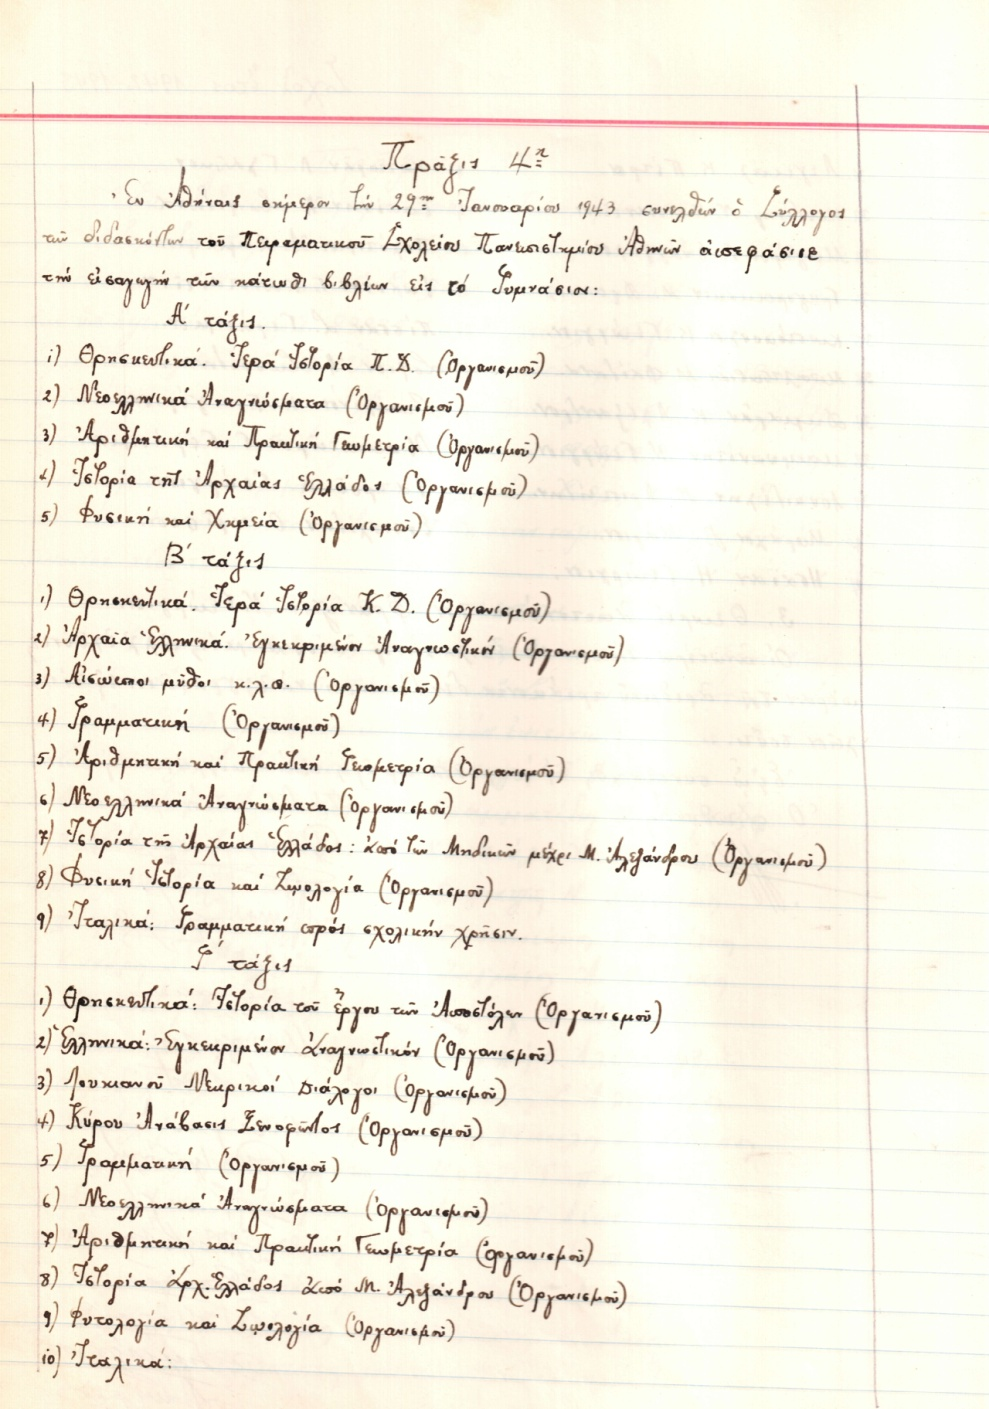 Πρᾶξις 4η
Ἐν Ἀθήναις σήμερον τήν 29ην Ἰανουαρίου 1943 συνελθών ὁ Σύλλογος
τῶν διδασκόντων τοῦ Πειραματικοῦ Σχολείου Πανεπιστημίου Ἀθηνῶν ἀπεφάσισε
τήν εἰσαγωγήν τῶν κάτωθι βιβλίων εἰς τό Γυμνάσιον:
Α΄ τάξις.
1) Θρησκευτικά. Ἱερά Ἱστορία Π. Δ. (Ὀργανισμοῦ)
2) Νεοελληνικά Ἀναγνώσματα (Ὀργανισμοῦ)
3) Ἀριθμητική καί Πρακτική Γεωμετρία (Ὀργανισμοῦ)
4) Ἱστορία τῆς Ἀρχαίας Ἑλλάδος (Ὀργανισμοῦ)
5) Φυσική καί Χημεία (Ὀργανισμοῦ)
Β΄ τάξις
1) Θρησκευτικά. Ἱερά Ἱστορία Κ. Δ. (Ὀργανισμοῦ)
2) Ἀρχαῖα Ἑλληνικά. Ἐγκεκριμένον Ἀναγνωστικόν (Ὀργανισμοῦ)
3) Αἰσώπειοι μῦθοι κ.λ.π. (Ὀργανισμοῦ)
4) Γραμματική (Ὀργανισμοῦ)
5) Ἀριθμητική καί Πρακτική Γεωμετρία (Ὀργανισμοῦ)
6) Νεοελληνικά Ἀναγνώσματα (Ὀργανισμοῦ)
7) Ἱστορία τῆς Ἀρχαίας Ἑλλάδος: ἀπό τῶν Μηδικῶν μέχρι Μ. Ἀλεξάνδρου (Ὀργανισμοῦ)
8) Φυσική Ἱστορία καί Ζωολογία (Ὀργανισμοῦ)
9) Ἰταλικά: Γραμματική πρός σχολικήν χρῆσιν.
Γ΄ τάξις
1) Θρησκευτικά: Ἱστορία τοῦ ἔργου τῶν Ἀποστόλων (Ὀργανισμοῦ)
2) Ἑλληνικά: Ἐγκεκριμένον ἀναγνωστικόν (Ὀργανισμοῦ)
3) Λουκιανοῦ Νεκρικοί Διάλογοι (Ὀργανισμοῦ)
4) Κύρου Ἀνάβασις Ξενοφῶντος (Ὀργανισμοῦ)
5) Γραμματική (Ὀργανισμοῦ)
6) Νεοελληνικά Ἀναγνώσματα (Ὀργανισμοῦ)
7) Ἀριθμητική καί Πρακτική Γεωμετρία (Ὀργανισμοῦ)
8) Ἱστορία Ἀρχ. Ἑλλάδος ἀπό Μ. Ἀλεξάνδρου (Ὀργανισμοῦ)
9) Φυτολογία καί Ζωολογία (Ὀργανισμοῦ)
10) Ἰταλικά: